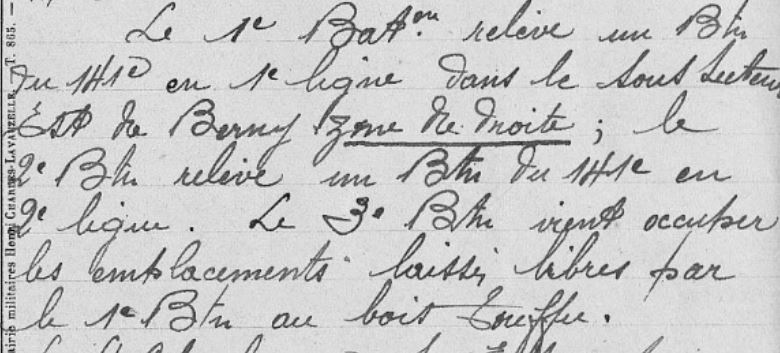 Le 1e Bat^on relève un Btn
du 141e en 1e ligne dans le sous secteur
Est de Berny zone de droite ; le
2e Btn relève un Btn du 141e en
2e ligne. Le 3e Btn vient occuper
les emplacements laissés libres par
le 1e Btn au bois Touffu.
airie militaires Henri CHARLES-LAVAUZELLE. — T. 865. —